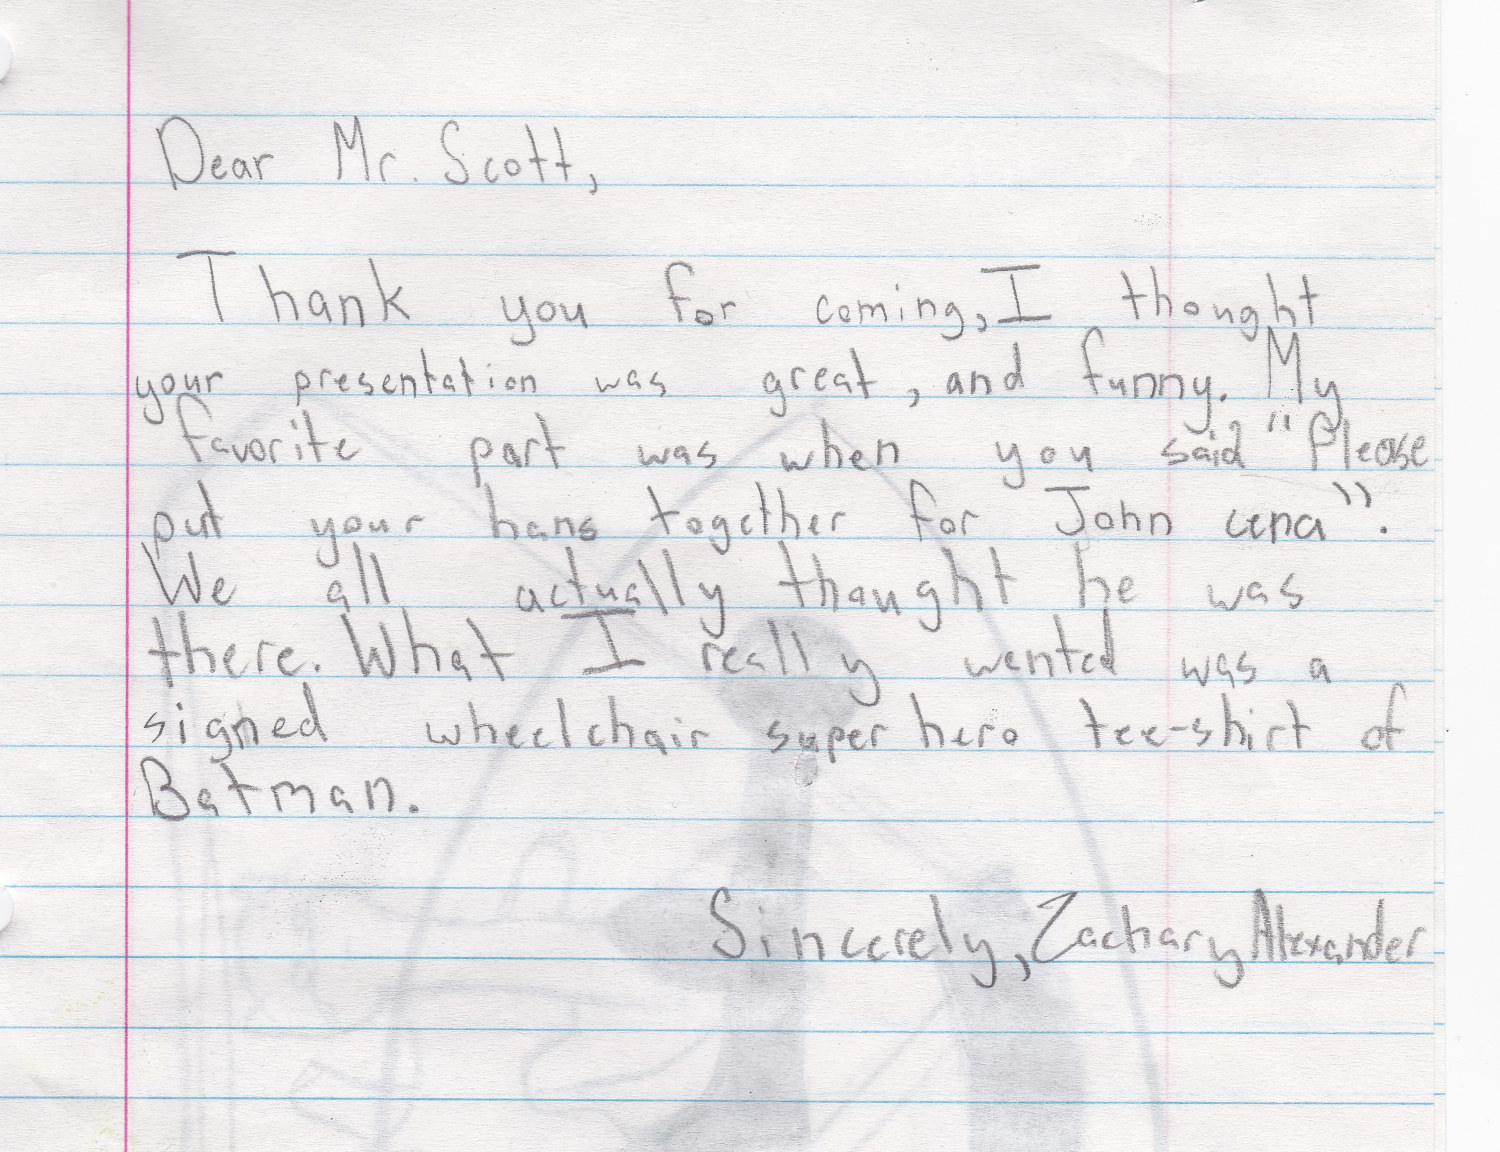 Dear Mr. Scott,
Thank you for coming, I thought
your presentation was great, and funny. My
favorite part was when you said "Please
put your hans together for John cena".
We all actually thought he was
there. What I really wanted was a
signed wheelchair super hero tee-shirt of
Batman.
Sincerely, Zachary Alexander